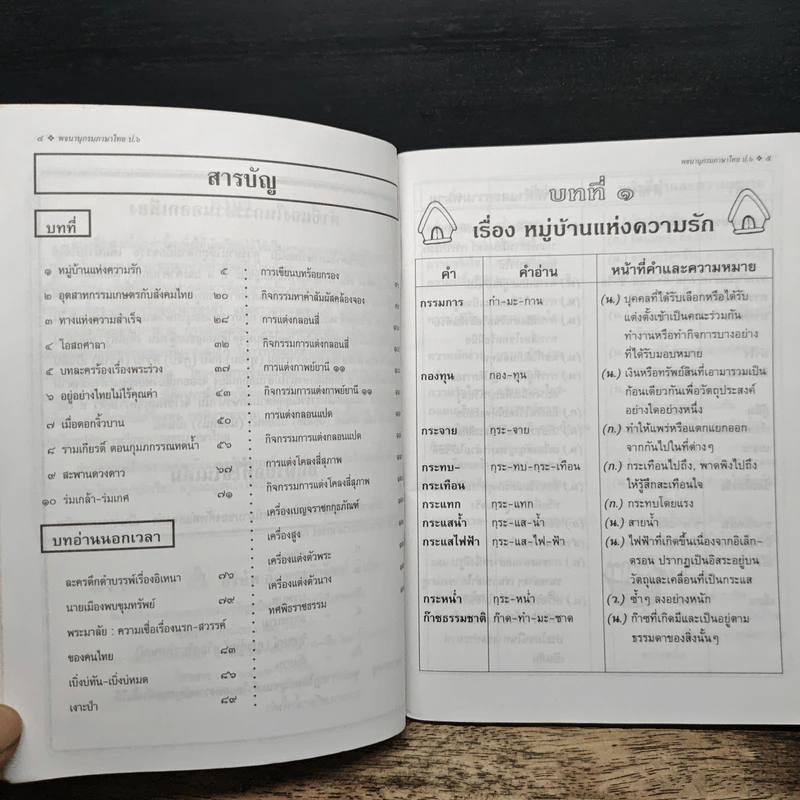 ๔ ❖ พจนานุกรมภาษาไทย ป.๖
สารบัญ
บทที่
๑ หมู่บ้านแห่งความรัก ๕
๒ อุตสาหกรรมเกษตรกับสังคมไทย ๒๐
๓ ทางแห่งความสำเร็จ ๒๘
๔ โอสถศาลา ๓๒
๕ บทละครร้องเรื่องพระร่วง ๓๗
๖ อยู่อย่างไทยไม่ไร้คุณค่า ๔๓
๗ เมื่อดอกงิ้วบาน ๕๐
๘ รามเกียรติ์ ตอนกุมภกรรณทดน้ำ ๕๖
๙ สะพานดวงดาว ๖๗
๑๐ ร่มเกล้า-ร่มเกศ ๗๑
บทอ่านนอกเวลา
ละครดึกดำบรรพ์เรื่องอิเหนา ๗๖
นายเมืองพบขุมทรัพย์ ๗๙
พระมาลัย : ความเชื่อเรื่องนรก-สวรรค์
ของคนไทย ๘๓
เบิ่งบ่ทัน-เบิ่งบ่หมด ๘๖
เงาะป่า ๘๙
การเขียนบทร้อยกรอง
กิจกรรมหาคำสัมผัสคล้องจอง
การแต่งกลอนสี่
กิจกรรมการแต่งกลอนสี่
การแต่งกาพย์ยานี ๑๑
กิจกรรมการแต่งกาพย์ยานี ๑๑
การแต่งกลอนแปด
กิจกรรมการแต่งกลอนแปด
การแต่งโคลงสี่สุภาพ
กิจกรรมการแต่งโคลงสี่สุภาพ
เครื่องเบญจราชกกุธภัณฑ์
เครื่องสูง
เครื่องแต่งตัวพระ
เครื่องแต่งตัวนาง
ทศพิธราชธรรม
พจนานุกรมภาษาไทย ป.๖ ❖ ๕
บทที่ ๑
เรื่อง หมู่บ้านแห่งความรัก
คำ คำอ่าน หน้าที่คำและความหมาย
กรรมการ กำ-มะ-กาน (น.) บุคคลที่ได้รับเลือกหรือได้รับ
แต่งตั้งเข้าเป็นคณะร่วมกัน
ทำงานหรือทำกิจการบางอย่าง
ที่ได้รับมอบหมาย
กองทุน กอง-ทุน (น.) เงินหรือทรัพย์สินที่เอามารวมเป็น
ก้อนเดียวกันเพื่อวัตถุประสงค์
อย่างใดอย่างหนึ่ง
กระจาย กฺระ-จาย (ก.) ทำให้แพร่หรือแตกแยกออก
จากกันไปในที่ต่างๆ
กระทบ- กฺระ-ทบ-กฺระ-เทือน (ก.) กระเทือนไปถึง, พาดพิงไปถึง
กระเทือน ให้รู้สึกสะเทือนใจ
กระแทก กฺระ-แทก (ก.) กระทบโดยแรง
กระแสน้ำ กฺระ-แส-น้ำ (น.) สายน้ำ
กระแสไฟฟ้า กฺระ-แส-ไฟ-ฟ้า (น.) ไฟฟ้าที่เกิดขึ้นเนื่องจากอิเล็ก-
ตรอน ปรากฏเป็นอิสระอยู่บน
วัตถุและเคลื่อนที่เป็นกระแส
กระหน่ำ กฺระ-หน่ำ (ว.) ซ้ำๆ ลงอย่างหนัก
ก๊าซธรรมชาติ ก๊าด-ทำ-มะ-ชาด (น.) ก๊าซที่เกิดมีและเป็นอยู่ตาม
ธรรมดาของสิ่งนั้นๆ